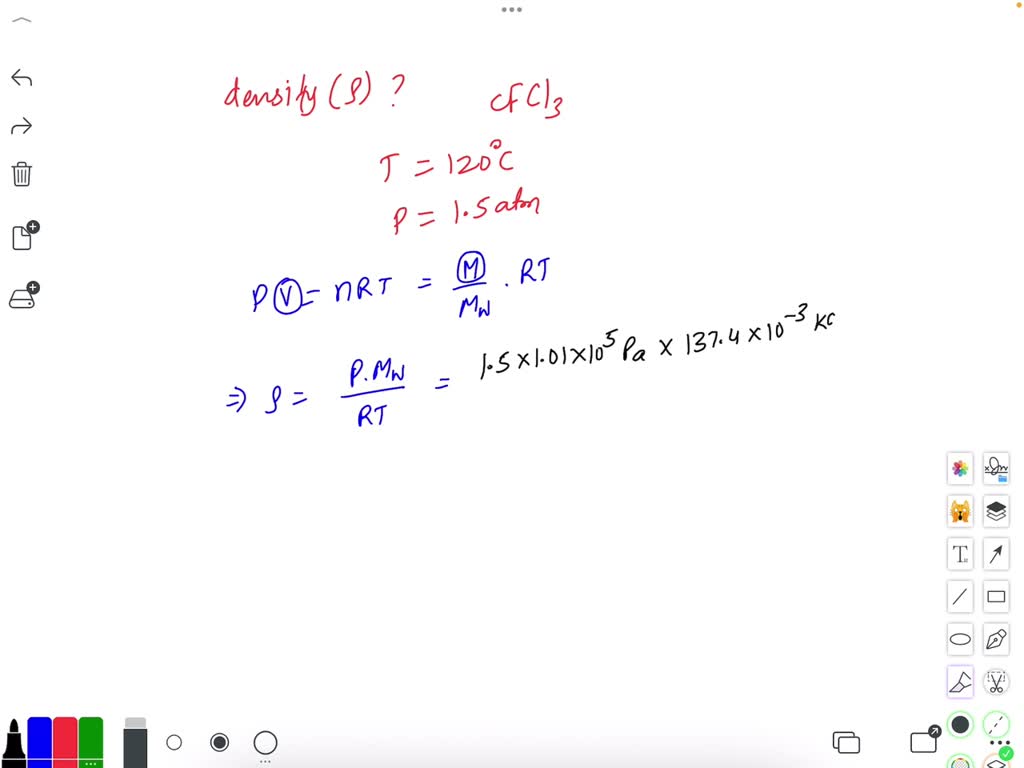 density (ρ) ? CFCl3
T = 120°C
P = 1.5 atm
PV = nRT = M/Mw . RT
⇒ ρ = P.Mw/RT = 1.5 × 1.01 × 10^5 Pa × 137.4 × 10^-3 KG